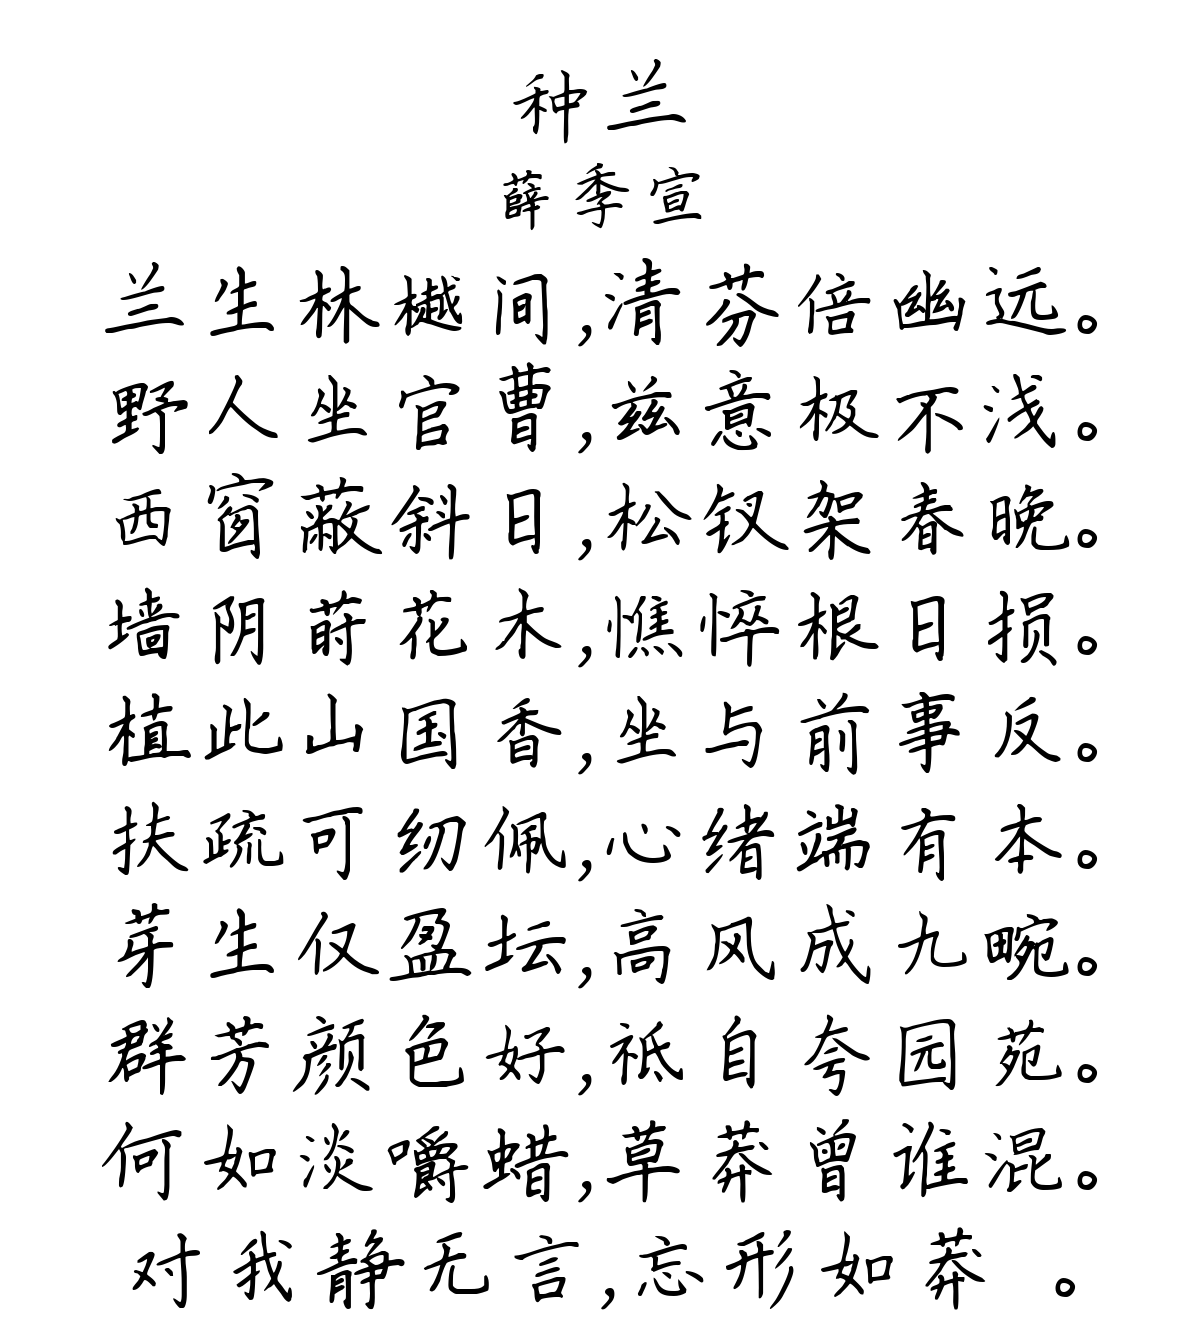 种兰
薛季宣
兰生林樾间,清芬倍幽远。
野人坐官曹,兹意极不浅。
西窗蔽斜日,松钗架春晚。
墙阴莳花木,憔悴根日损。
植此山国香,坐与前事反。
扶疏可纫佩,心绪端有本。
芽生仅盈坛,高风成九畹。
群芳颜色好,祗自夸园苑。
何如淡嚼蜡,草莽曾谁混。
对我静无言,忘形如莽 。